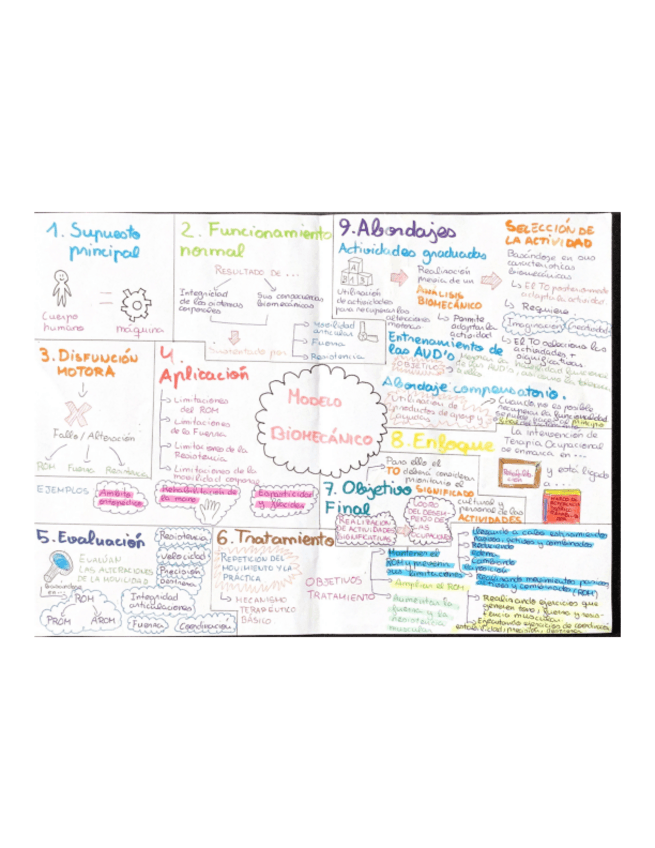 1. Supuesto
principal
Cuerpo
humano
=
máquina
2. Funcionamiento
normal
RESULTADO DE ...
Integridad
de los sistemas
corporales
Sus consecuencias
biomecánicas
Movilidad
articular
Fuerza
Resistencia
3. DISFUNCIÓN
MOTORA
Fallo/Alteración
ROM Fuerza Resistencia
EJEMPLOS
Ámbito
ortopédico
Rehabilitación de
la mano
4.
Aplicación
Limitaciones
del ROM
Limitaciones
de la Fuerza
Limitaciones de la
Resistencia
Limitaciones de la
movilidad corporal
MODELO
BIOMECÁNICO
5. Evaluación
EVALUÁN
LAS ALTERACIONES
DE LA MOVILIDAD
Basándose
en...
ROM
PROM AROM
Resistencia
Velocidad
Precisión
Destreza
Integridad
articulaciones
Fuerza
Coordinación
6. Tratamiento
REPETICIÓN DEL
MOVIMIENTO Y LA
PRÁCTICA
MECANISMO
TERAPÉUTICO
BÁSICO
7. Objetivo
Final
REALIZACIÓN
DE ACTIVIDADES
SIGNIFICATIVAS
LOGRO
DEL DESEM-
PEÑO DE
OBJETIVOS
TRATAMIENTO
Mantener el
ROM y prevenir
sus limitaciones
Ampliar el ROM
Aumentar la
fuerza y la
resistencia
muscular
Realizando ejercicios que
8. Enfoque
La intervención de
Terapia Ocupacional
se enmarca en ...
y está ligado
a ...
Para ello el
TO deberá considerar
prioritario el
SIGNIFICADO
cultural y
personal de las
ACTIVIDADES
9. Abordajes
Actividades graduadas
Utilización
de actividades
para recuperar las
alteraciones
motoras
Realización
previa de un
ANÁLISIS
BIOMECÁNICO
Permite
adaptar la
actividad
SELECCIÓN DE
LA ACTIVIDAD
Basándose en sus
características
biomecánicas
El TO posteriormente
adapta la actividad
Requiere
Imaginación Creatividad
El TO selecciona las
actividades +
significativas
Entrenamiento de
las AVD's
OBJETIVO
Abordaje compensatorio.
Utilización de
productos de apoyo y
ayudas
Cuando no es posible
recuperar la funcionalidad